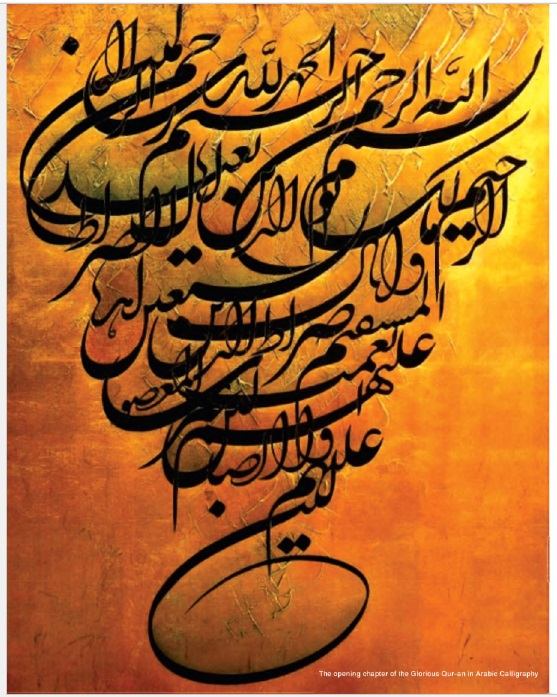 بسم الله الرحمن الرحيم
الحمد لله رب العالمين
الرحمن الرحيم
مالك يوم الدين
اياك نعبد واياك نستعين
اهدنا الصراط المستقيم
صراط الذين انعمت عليهم
غير المغضوب عليهم ولا الضالين
The opening chapter of the Glorious Qur-an in Arabic Calligraphy